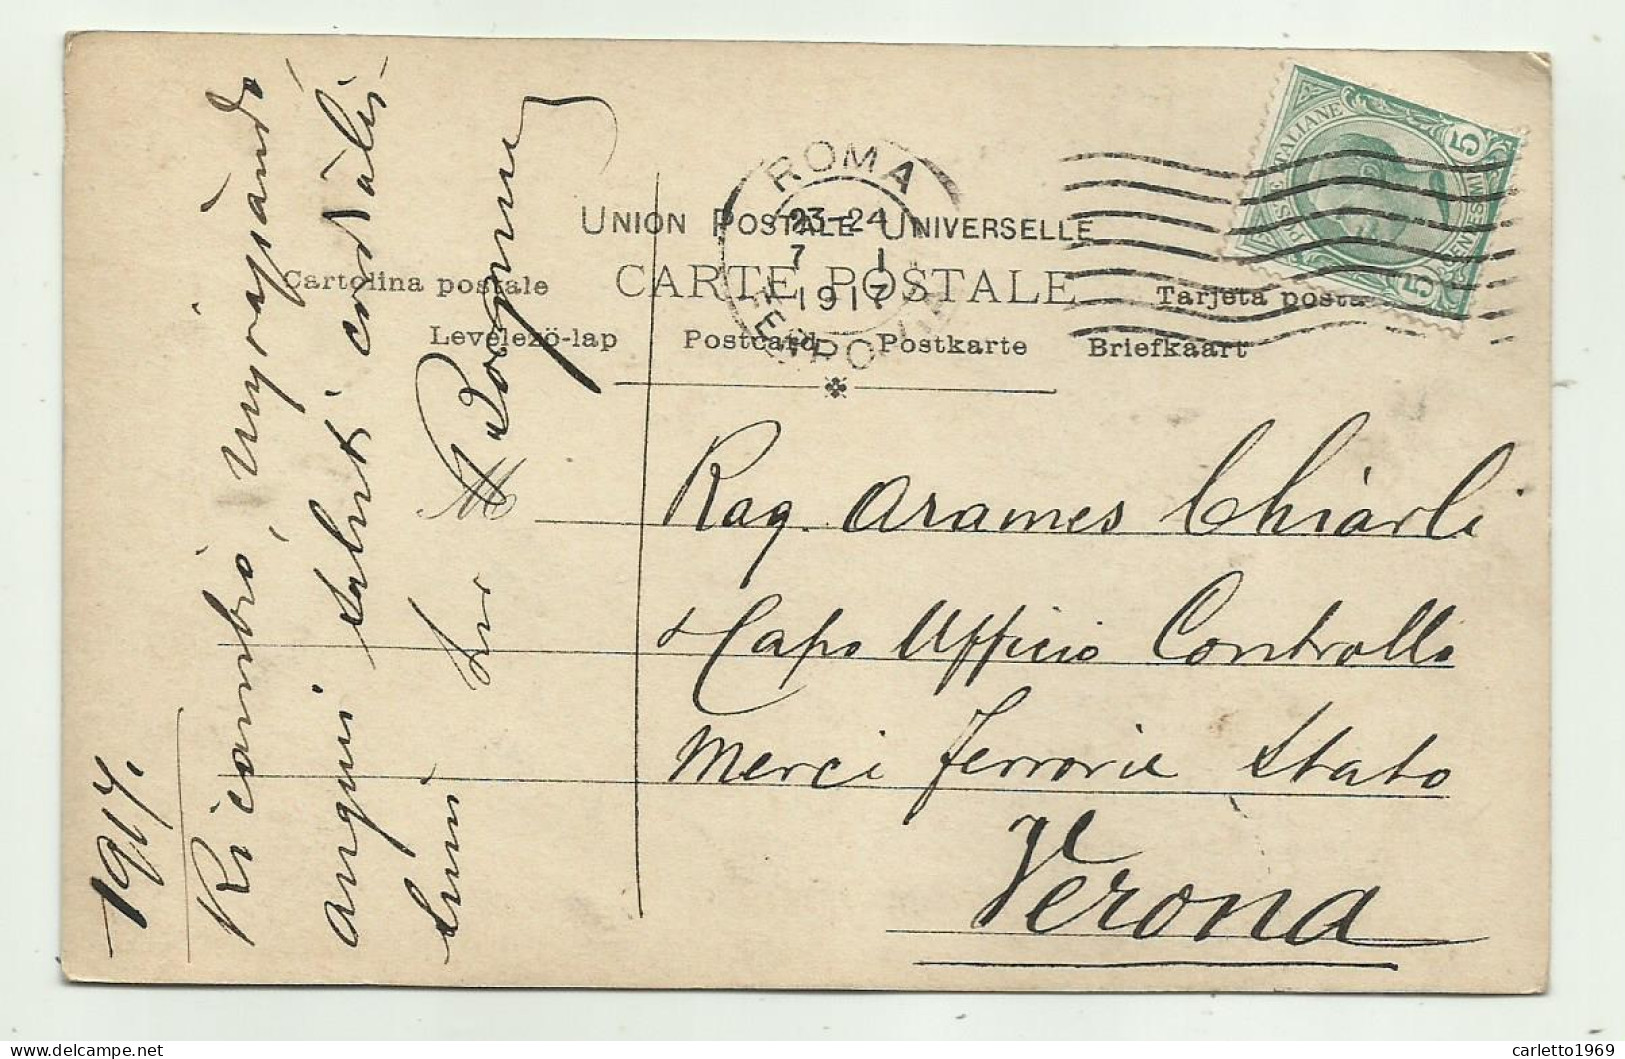 1917.
Ricambio, ringraziando
auguri saluti cordialis-
simi
Suo
UNION POSTALE UNIVERSELLE
CARTE POSTALE
Cartolina postale
Tarjeta posta
Levelező-lap Postcard Postkarte Briefkaart
ROMA
23-24
7 I
1917
FERROVIA
POSTE ITALIANE
5
5
Rag. Arames Chiarli
Capo Ufficio Controllo
Merci Ferrovie Stato
Verona
carletto1969